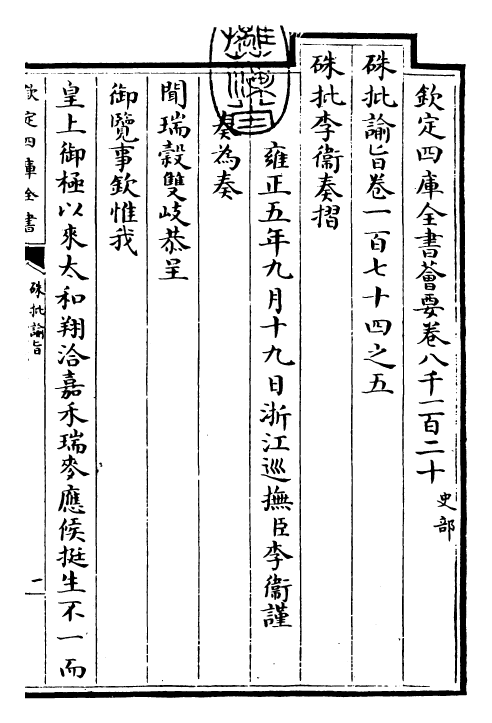 欽定四庫全書薈要卷八千一百二十 史部
硃批諭旨卷一百七十四之五
硃批李衞奏摺
雍正五年九月十九日浙江巡撫臣李衞謹
奏為奏
聞瑞穀雙岐恭呈
御覽事欽惟我
皇上御極以來太和翔洽嘉禾瑞麥應候挺生不一而
欽定四庫全書
硃批諭旨
一